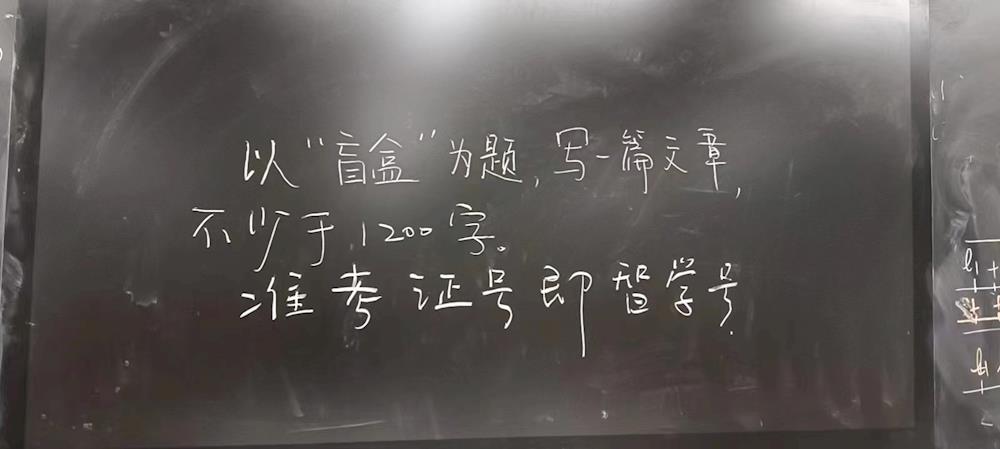 以“盲盒”为题,写一篇文章,
不少于1200字。
准考证号即智学号.